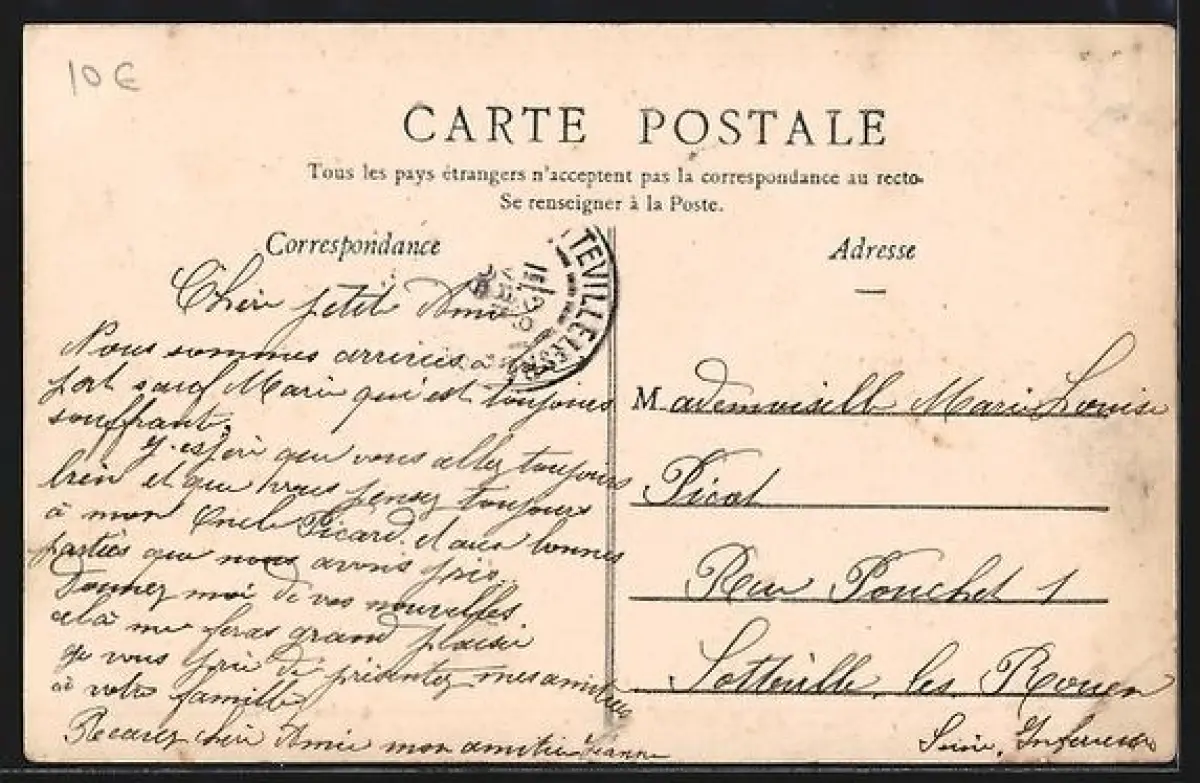 10 €
CARTE POSTALE
Tous les pays étrangers n'acceptent pas la correspondance au recto.
Se renseigner à la Poste.
Correspondance
Chère petite Amie
Nous sommes arrivées à
port sauf Marie qui est toujours
souffrant.
J'espère que vous allez toujours
bien et que vous pensez toujours
à mon Oncle Picard et aux bonnes
parties que nous avons pris.
Donnez moi de vos nouvelles
celà me feras grand plaisir
Je vous prie de présenter mes amitiés
à votre famille
Recevez chère Amie mon amitié Jeanne
TEVILLE LES
Adresse
Mademoiselle Marie Louise
Picot
Rue Pouchet 1
Sotteville les Rouen
Seine Inférieure